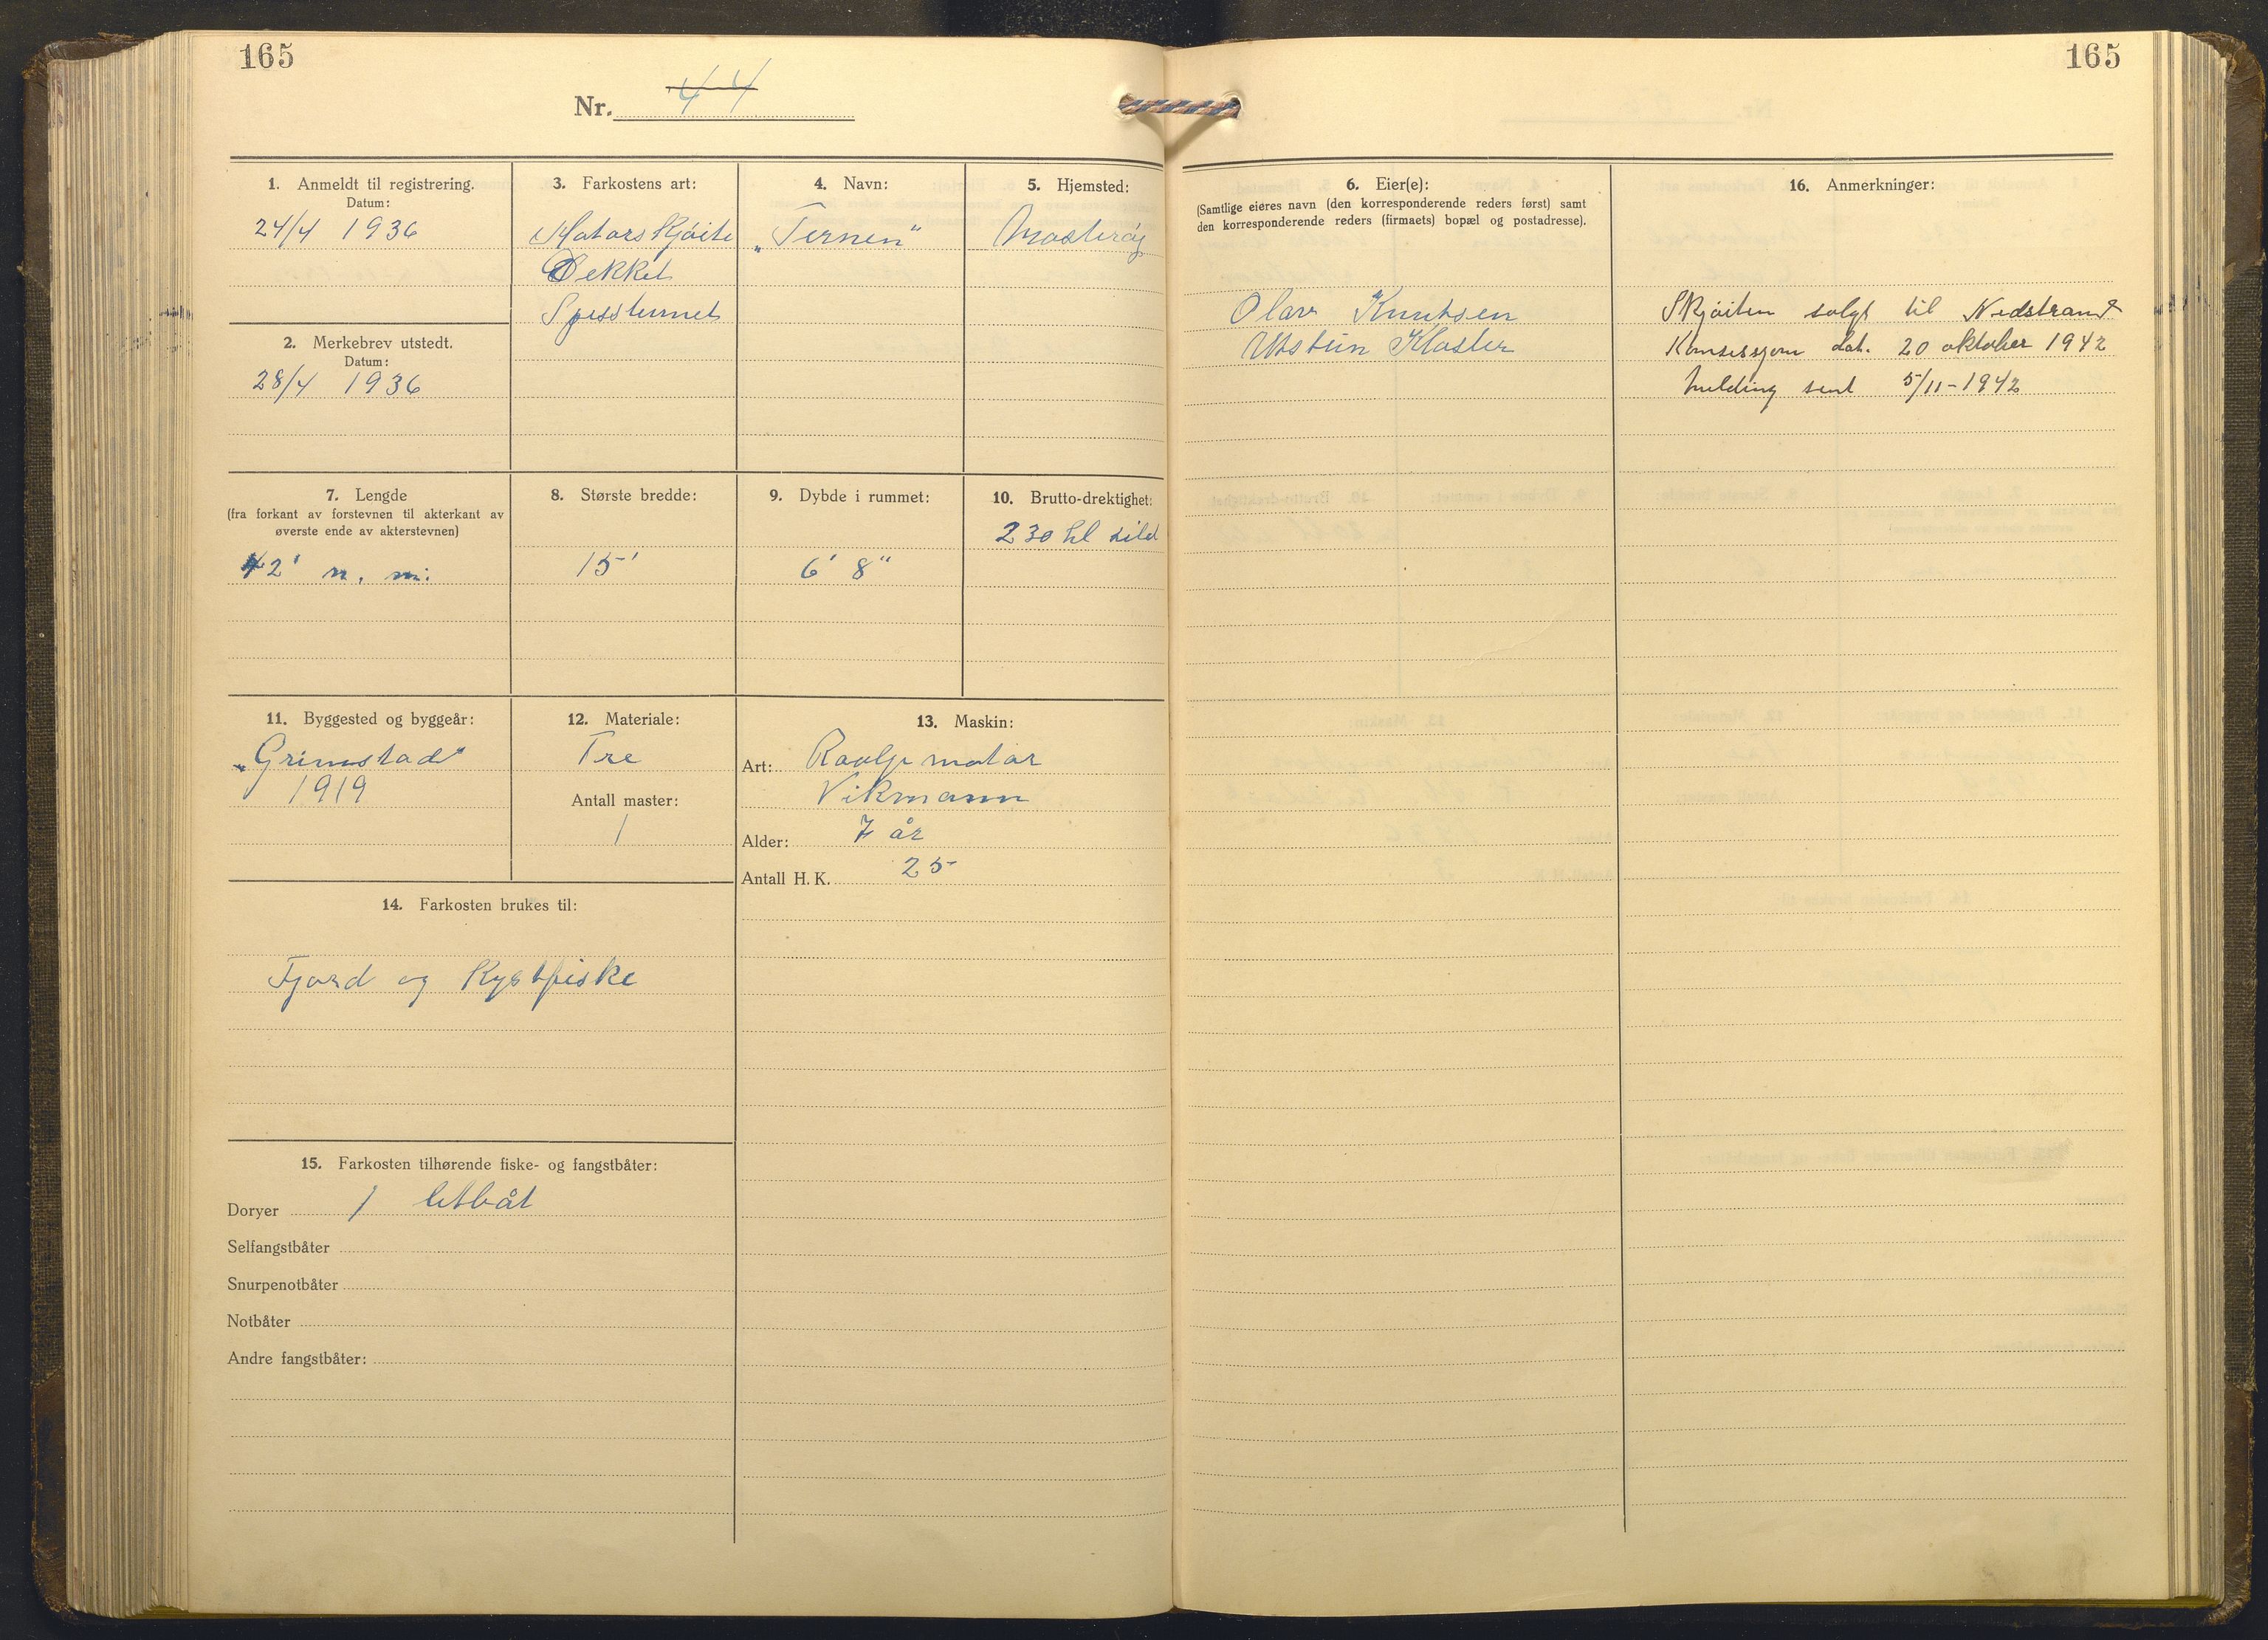 165
165
Nr. 44
1. Anmeldt til registrering.
Datum:
24/4 1936
2. Merkebrev utstedt.
Datum:
28/4 1936
3. Farkostens art:
Motorskjøite
Dekket
Spisstevnet
4. Navn:
„Ternen"
5. Hjemsted:
Mosterøy
6. Eier(e):
(Samtlige eieres navn (den korresponderende reders først) samt
den korresponderende reders (firmaets) bopæl og postadresse).
Olav Knutsen
Utstein Kloster
16. Anmerkninger:
Skjøiten solgt til Nedstrand
Konsessjon dat. 20 oktober 1942
melding sent 5/11-1942
7. Lengde
(fra forkant av forstevnen til akterkant av
øverste ende av akterstevnen)
42' n. m.
8. Største bredde:
15'
9. Dybde i rummet:
6' 8"
10. Brutto-drektighet:
230 hl sild
11. Byggested og byggeår:
„Grimstad"
1919
12. Materiale:
Tre
Antall master:
1
13. Maskin:
Art: Raolje motor
Vikmann
Alder: 7 år
Antall H. K. 25
14. Farkosten brukes til:
Fjord og Kystfiske
15. Farkosten tilhørende fiske- og fangstbåter:
Doryer 1 letbåt
Selfangstbåter
Snurpenotbåter
Notbåter
Andre fangstbåter: